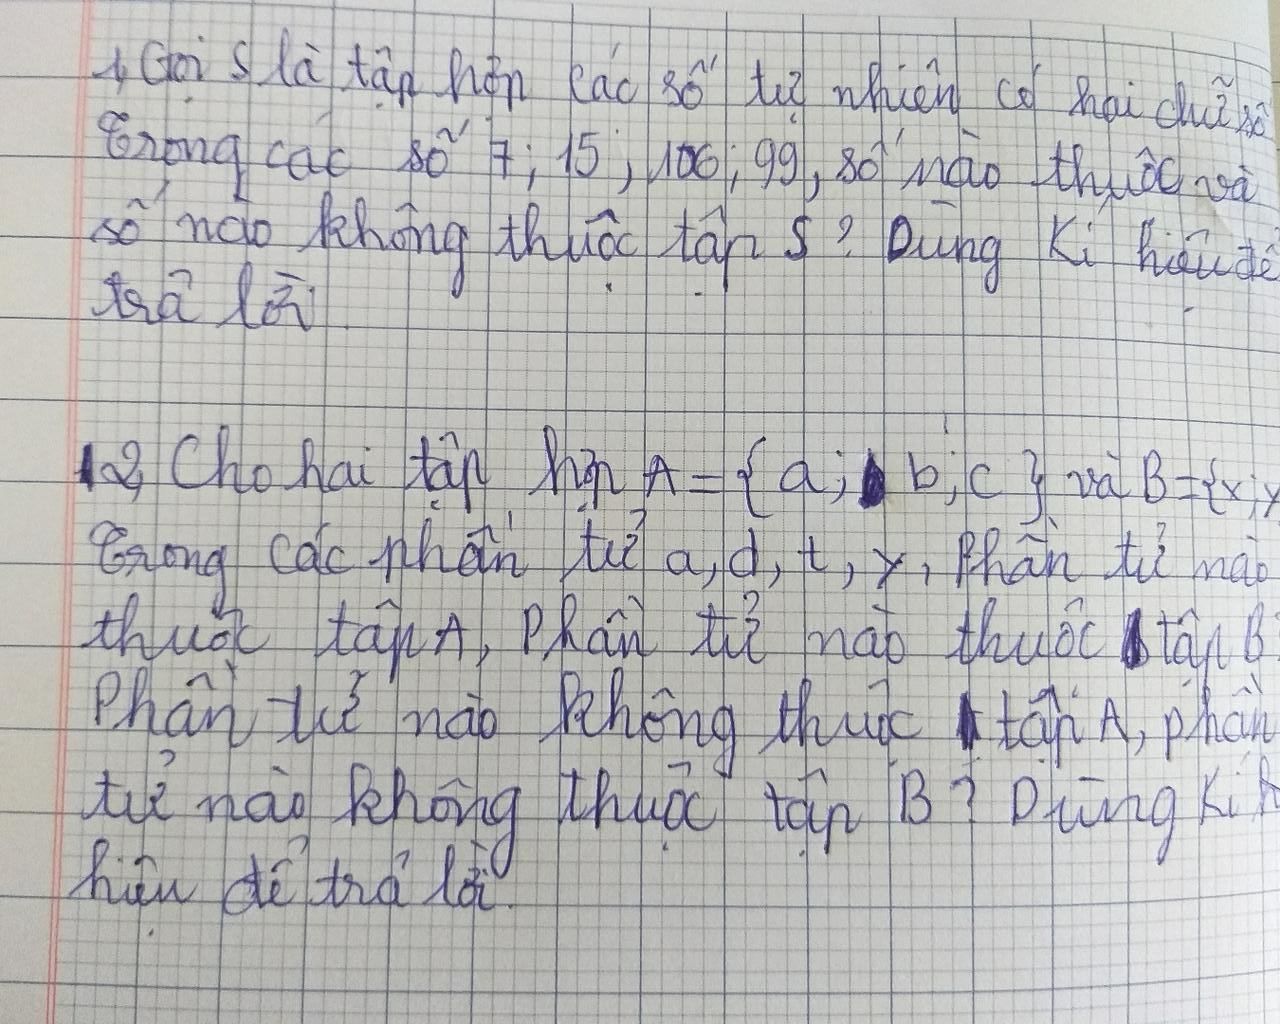 1, Gọi S là tập hợp các số tự nhiên có hai chữ số
Trong các số 7; 15; 106; 99, số nào thuộc và
số nào không thuộc tập S? Dùng kí hiệu để
trả lời
2, Cho hai tập hợp A = { a; b; c } và B = {x; y
Trong các phần tử a, d, t, y, Phần tử nào
thuộc tập A, Phần tử nào thuộc tập B
Phần tử nào không thuộc tập A, phần
tử nào không thuộc tập B? Dùng kí
hiệu để trả lời.